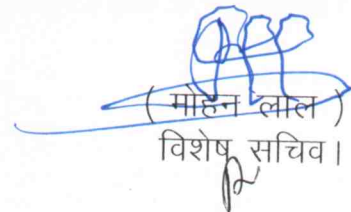 ( मोहन लाल )
विशेष सचिव।